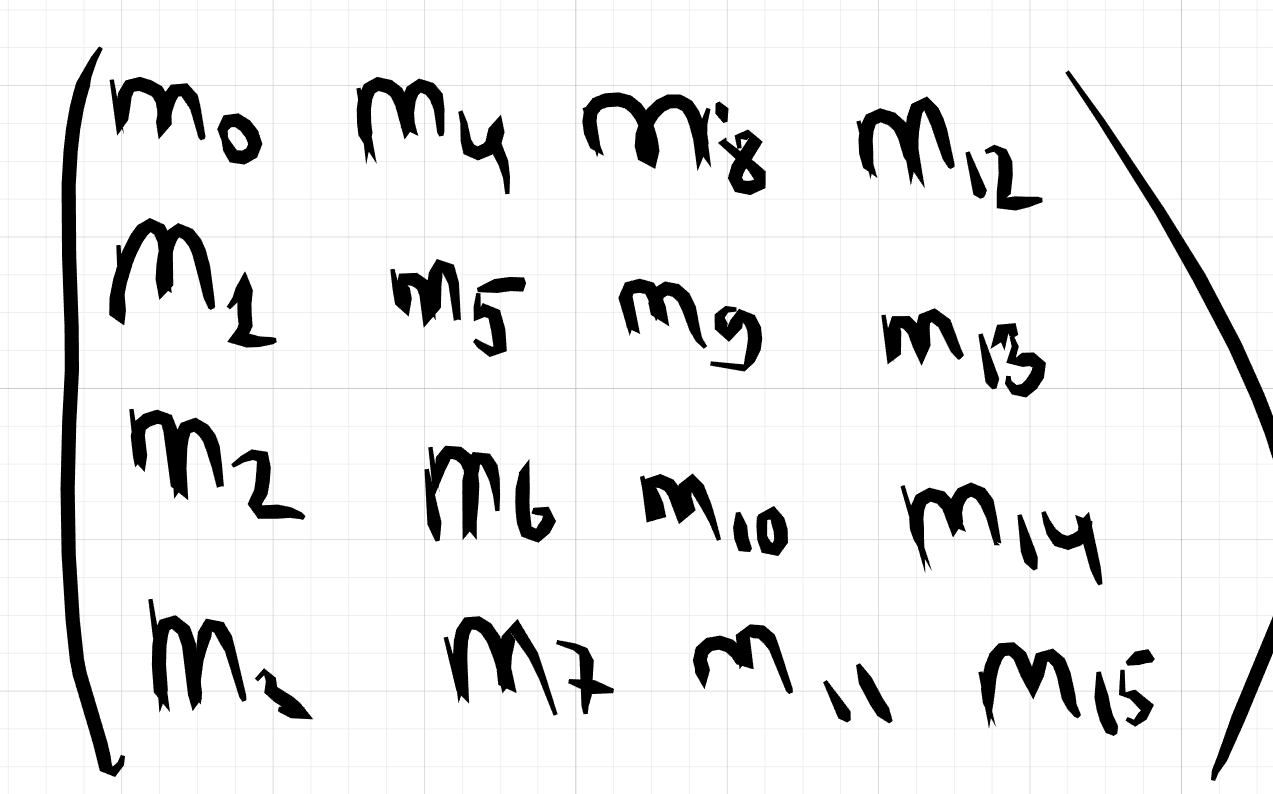 m₀ m₄ m₈ m₁₂
m₁ m₅ m₉ m₁₃
m₂ m₆ m₁₀ m₁₄
m m₇ m₁₁ m₁₅